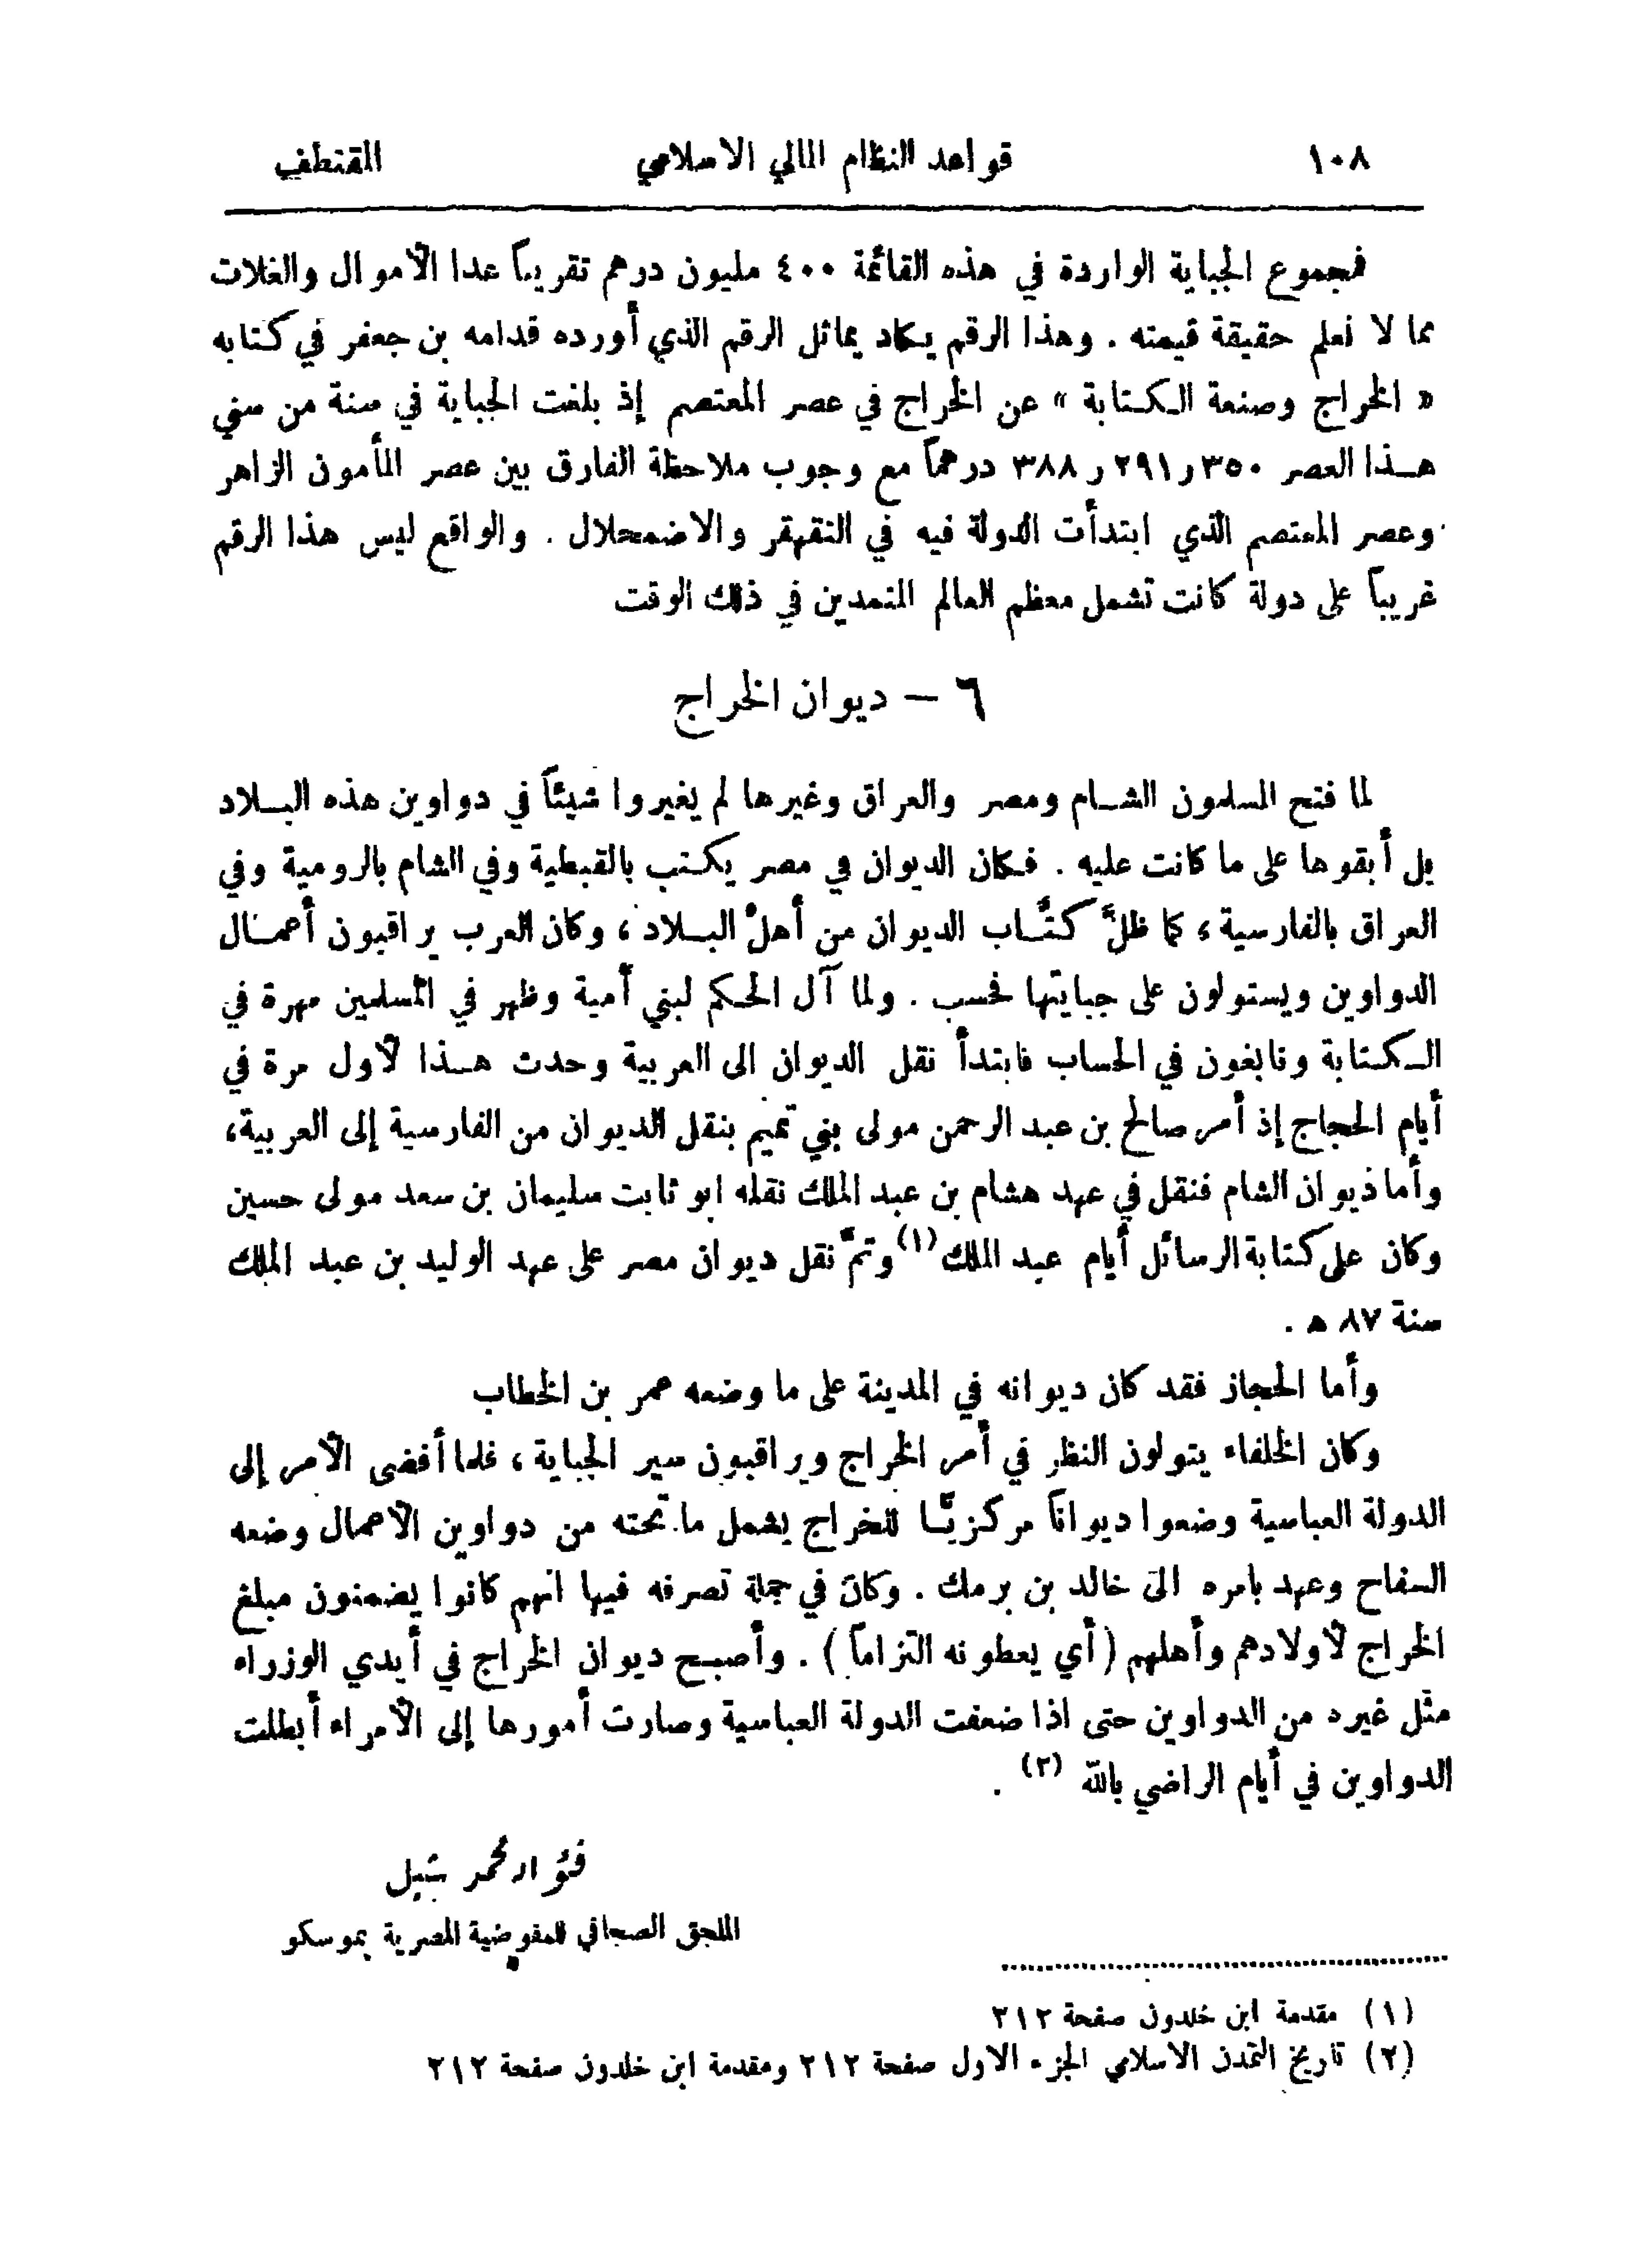 ١٠٨ قواعد النظام المالي الاسلامي المقتطف
فمجموع الجباية الواردة في هذه القائمة ٤٠٠ مليون درهم تقريباً عدا الأموال والغلات
مما لا نعلم حقيقة قيمته . وهذا الرقم يكاد يماثل الرقم الذي أورده قدامه بن جعفر في كتابه
« الخراج وصنعة الكتابة » عن الخراج في عصر المعتصم إذ بلغت الجباية في سنة من سني
هذا العصر ٣٥٠ر٢٩١ر٣٨٨ درهماً مع وجوب ملاحظة الفارق بين عصر المأمون الزاهر
وعصر المعتصم الذي ابتدأت الدولة فيه في التقهقر والاضمحلال . والواقع ليس هذا الرقم
غريباً على دولة كانت تشمل معظم العالم المتمدين في ذلك الوقت
٦ – ديوان الخراج
لما فتح المسلمون الشام ومصر والعراق وغيرها لم يغيروا شيئاً في دواوين هذه البلاد
بل أبقوها على ما كانت عليه . فكان الديوان في مصر يكتب بالقبطية وفي الشام بالرومية وفي
العراق بالفارسية ، كما ظلَّ كتَّاب الديوان من أهل البلاد ، وكان العرب يراقبون أعمال
الدواوين ويستولون على جبايتها فحسب . ولما آل الحكم لبني أمية وظهر في المسلمين مهرة في
الكتابة ونابغون في الحساب فابتدأ نقل الديوان الى العربية وحدث هذا لأول مرة في
أيام الحجاج إذ أمر صالح بن عبد الرحمن مولى بني تميم بنقل الديوان من الفارسية إلى العربية ،
وأما ديوان الشام فنقل في عهد هشام بن عبد الملك نقله ابو ثابت سليمان بن سعد مولى حسين
وكان على كتابة الرسائل أيام عبد الملك (١) وتمَّ نقل ديوان مصر على عهد الوليد بن عبد الملك
سنة ٨٧ ه .
وأما الحجاز فقد كان ديوانه في المدينة على ما وضعه عمر بن الخطاب
وكان الخلفاء يتولون النظر في أمر الخراج ويراقبون سير الجباية ، فلما أفضى الأمر إلى
الدولة العباسية وضعوا ديواناً مركزيًّا للخراج يشمل ما تحته من دواوين الأعمال وضعه
السفاح وعهد بامره الى خالد بن برمك . وكان في جملة تصرفه فيها انهم كانوا يضمنون مبلغ
الخراج لأولادهم وأهلهم ( أي يعطونه التزاماً ) . وأصبح ديوان الخراج في أيدي الوزراء
مثل غيره من الدواوين حتى اذا ضعفت الدولة العباسية وصارت أمورها إلى الأمراء أبطلت
الدواوين في أيام الراضي بالله (٢) .
فؤاد محمد شبل
الملحق الصحافي للمفوضية المصرية بموسكو
(١) مقدمة ابن خلدون صفحة ٢١٢
(٢) تاريخ التمدن الاسلامي الجزء الاول صفحة ٢١٢ ومقدمة ابن خلدون صفحة ٢١٢